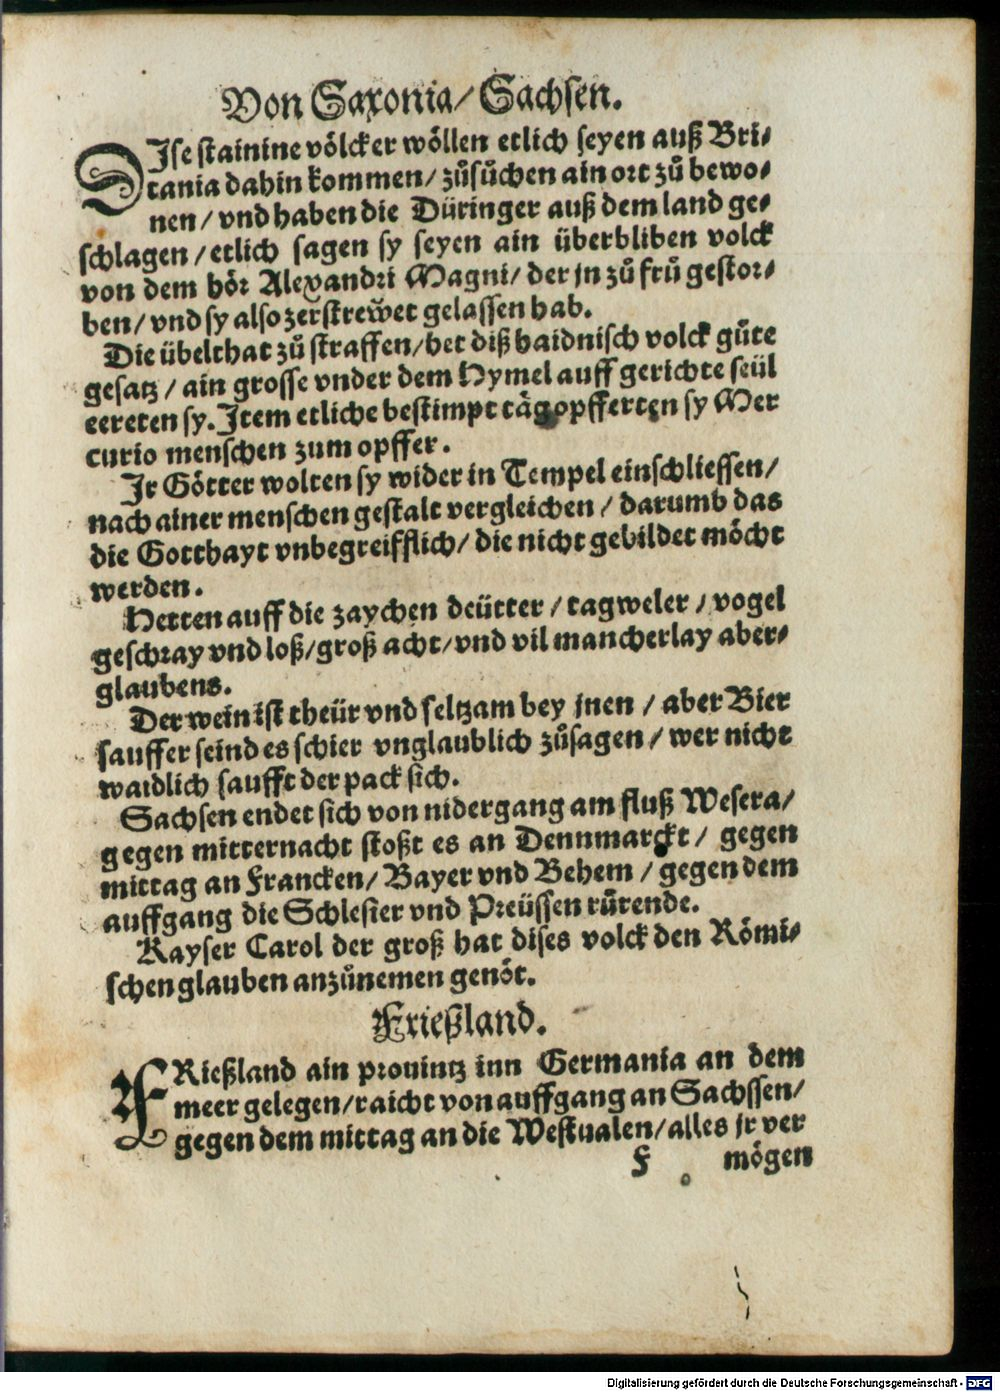 Von Saxonia/ Sachsen.
DIse stainine völcker wöllen etlich seyen auß Bri-
tania dahin kommen/ zůsůchen ain ort zů bewo-
nen/ vnd haben die Düringer auß dem land ge-
schlagen/ etlich sagen sy seyen ain überbliben volck
von dem hör Alexandri Magni/ der jn zů frů gestor-
ben/ vnd sy also zerstrewet gelassen hab.
Die übelthat zů straffen/ het diß haidnisch volck gůte
gesatz/ ain grosse vnder dem Hymel auff gerichte seül
eereten sy. Item etliche bestimpt täg opfferten sy Mer
curio menschen zum opffer.
Ir Götter wolten sy wider in Tempel einschliessen/
nach ainer menschen gestalt vergleichen/ darumb das
die Gotthayt vnbegreifflich/ die nicht gebildet möcht
werden.
Hetten auff die zaychen deütter/ tagweler/ vogel
geschray vnd loß/ groß acht/ vnd vil mancherlay aber-
glaubens.
Der wein ist theür vnd seltzam bey jnen/ aber Bier
sauffer seind es schier vnglaublich zůsagen/ wer nicht
waidlich saufft der pack sich.
Sachsen endet sich von nidergang am fluß Wesera/
gegen mitternacht stoßt es an Dennmarckt/ gegen
mittag an Francken/ Bayer vnd Behem/ gegen dem
auffgang die Schlesier vnd Preüssen rürende.
Kayser Carol der groß hat dises volck den Römi-
schen glauben anzůnemen genöt.
Frießland.
FRießland ain prouintz inn Germania an dem
meer gelegen/ raicht von auffgang an Sachssen/
gegen dem mittag an die Westualen/ alles jr ver
F mögen
Digitalisierung gefördert durch die Deutsche Forschungsgemeinschaft - DFG